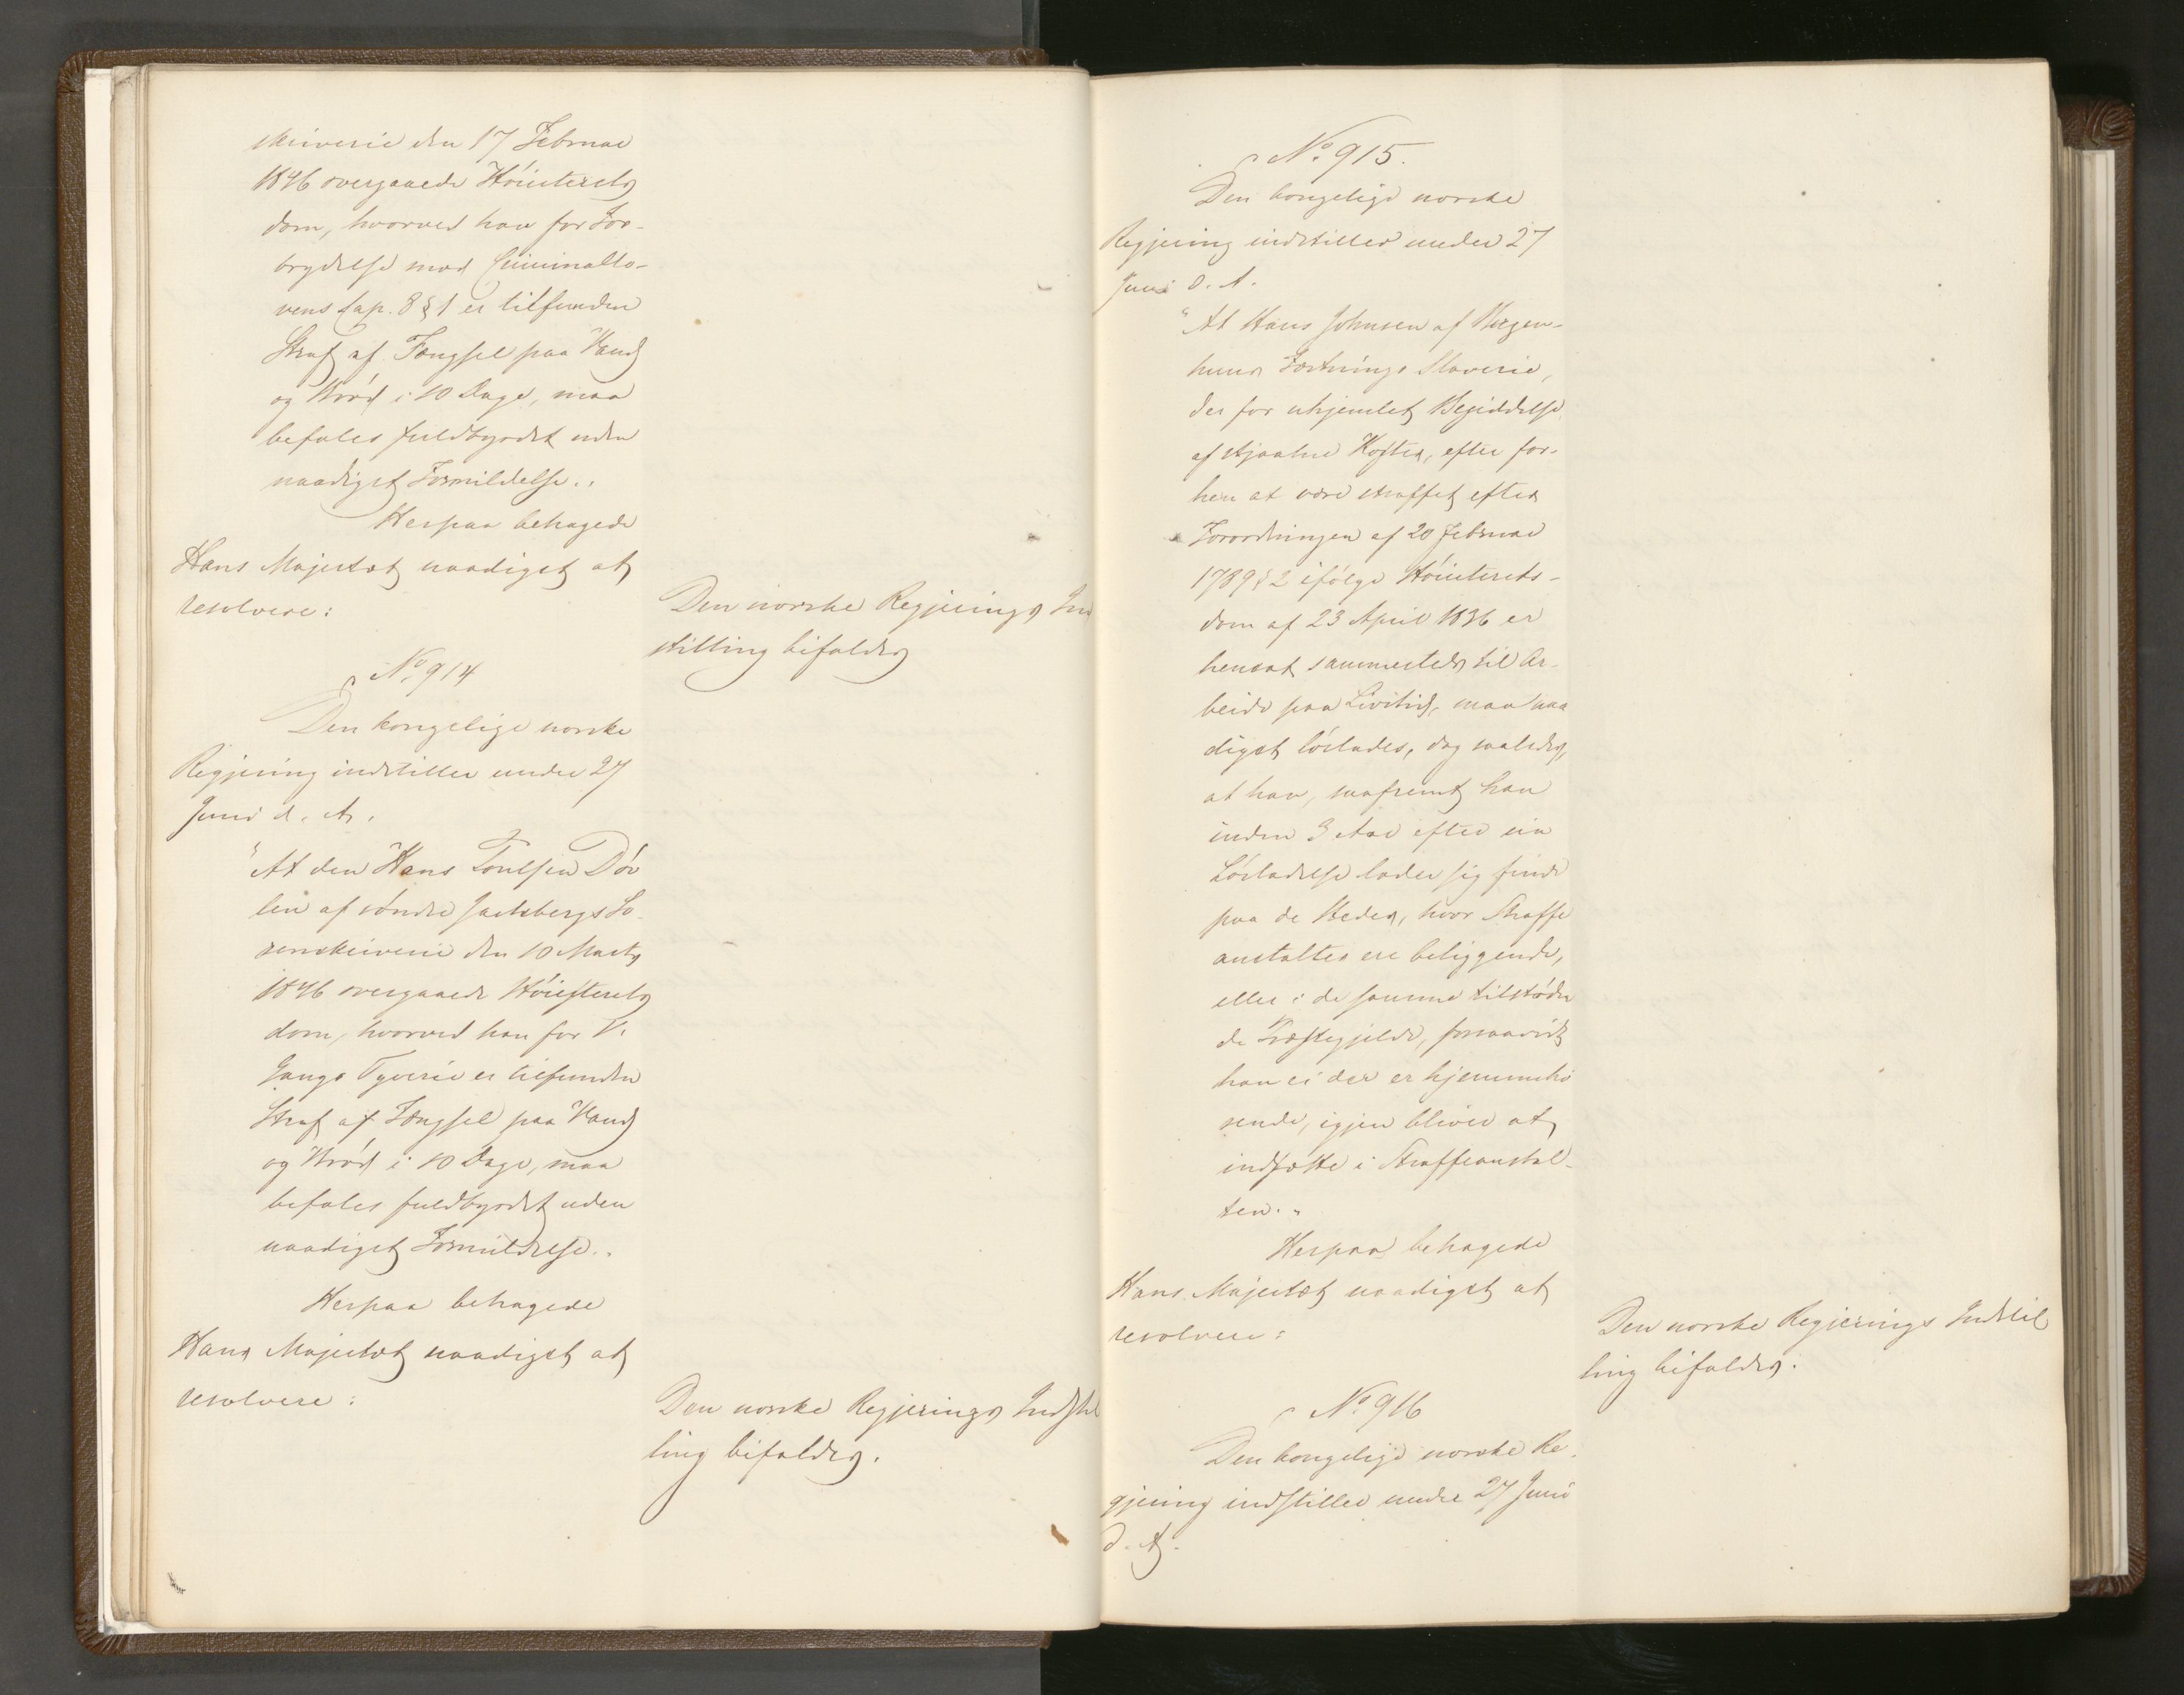 skriverie den 17 Februar
1846 overgaaede Höiesterets
dom, hvorved han for For-
brydelse mod Criminallo-
vens Cap. 8 § 1 er tilfunden
Straf af Fængsel paa Vand
og Bröd i 10 Dage, maa
befales fuldbyrdet uden
naadigst Formildelse."
Herpaa behagede
Hans Majestæt naadigst at
resolvere:
Den norske Regjerings Ind
stilling bifaldes
No 914
Den kongelige norske
Regjering indstiller under 27
Juni d. A.
"At den Hans Poulsen
af söndre Jarlsbergs So-
renskriverie den 10 Marts
1846 overgaaede Höiesterets
dom, hvorved han for 1ste
Gangs Tyverie er tilfunden
Straf af Fængsel paa Vand
og Bröd i 10 Dage, maa
befales fuldbyrdet uden
naadigst Formildelse."
Herpaa behagede
Hans Majestæt naadigst at
resolvere:
Den norske Regjerings Indstil
ling bifaldes.
No 915.
Den kongelige norske
Regjering indstiller under 27
Juni d. A.
"At Hans Johnsen af Bergen-
huus Fæstnings Slaverie,
der for uhjemlet Besiddelse
af stjaalne Koster, efter for-
hen at være straffet efter
Forordningen af 20 Februar
1789 § 2 ifölge Höiesterets-
dom af 23 April 1836 er
hensat sammesteds til Ar-
beide paa Livstid, maa naa
digst löslades, dog saaledes,
at han, saafremt han
inden 3 Aar efter sin
Lösladelse lader sig finde
paa de Steder, hvor Straffe
anstalter ere beliggende,
eller i de samme tilstöden
de Præstegjelde, forsaavidt
han ei der er hjemmehö
rende, igjen bliver at
indsætte i Straffeanstal-
ten."
Herpaa behagede
Hans Majestæt naadigst at
resolvere:
Den norske Regjerings Indstil
ling bifaldes.
No 916
Den kongelige norske Re-
gjering indstiller under 27 Juni
d. A.